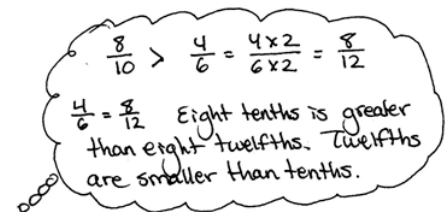 8/10 > 4/6 = 4x2/6x2 = 8/12
4/6 = 8/12 Eight tenths is greater
than eight twelfths. Twelfths
are smaller than tenths.